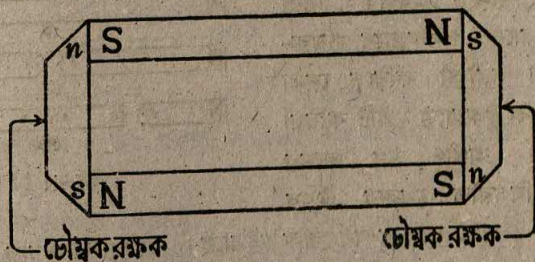 n S N s
s N S n
চৌম্বক রক্ষক চৌম্বক রক্ষক